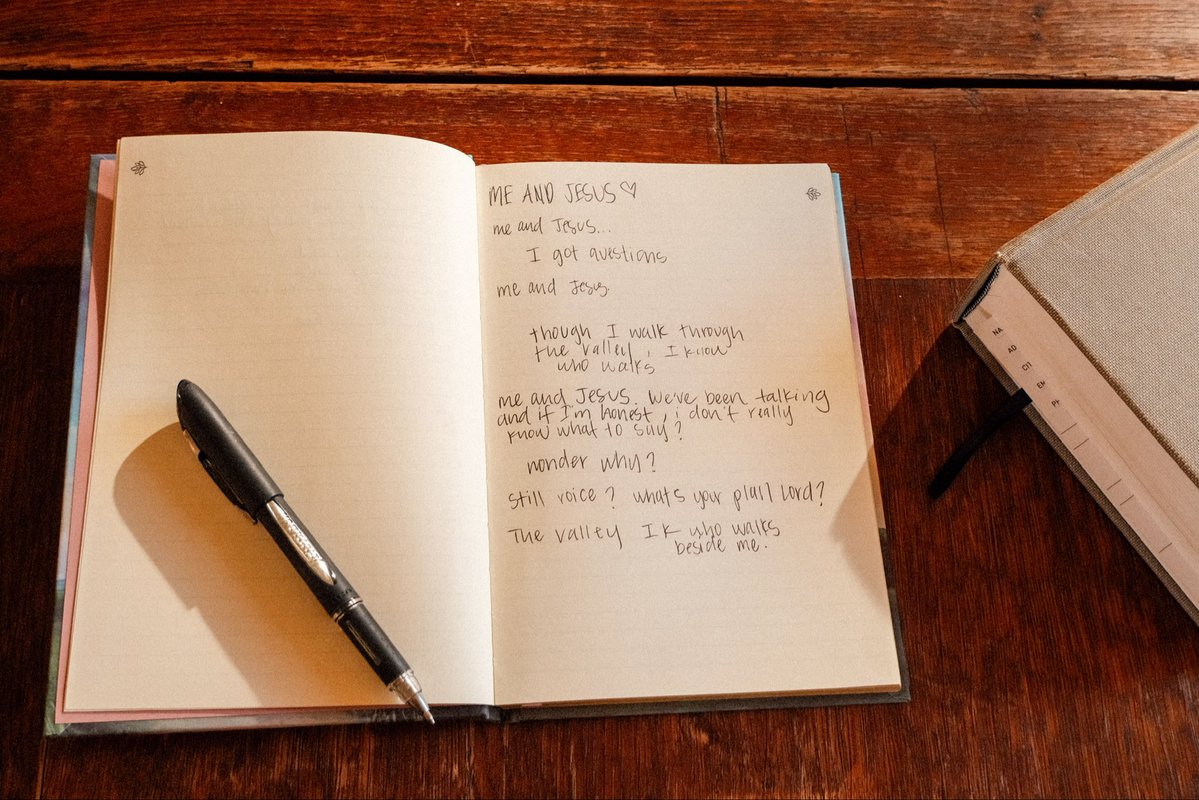 ME AND JESUS ♡
me and Jesus...
I got questions
me and Jesus.
though I walk through
the valley, I know
who walks
me and Jesus. We've been talking
and if I'm honest, i don't really
know what to say?
wonder why?
still voice? what's your plan Lord?
The valley I K who walks
beside me.
NA
AD